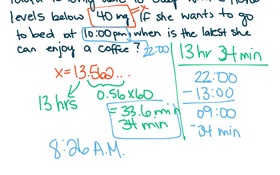 levels below 40 mg = x If she wants to go
to bed at 10:00 pm when is the latest she
can enjoy a coffee? 22:00
13 hr 34 min
x = 13.562...
13 hrs
0.56 x 60
= 33.6 min
34 min
22:00
- 13:00
09:00
- 34 min
8:26 A.M.